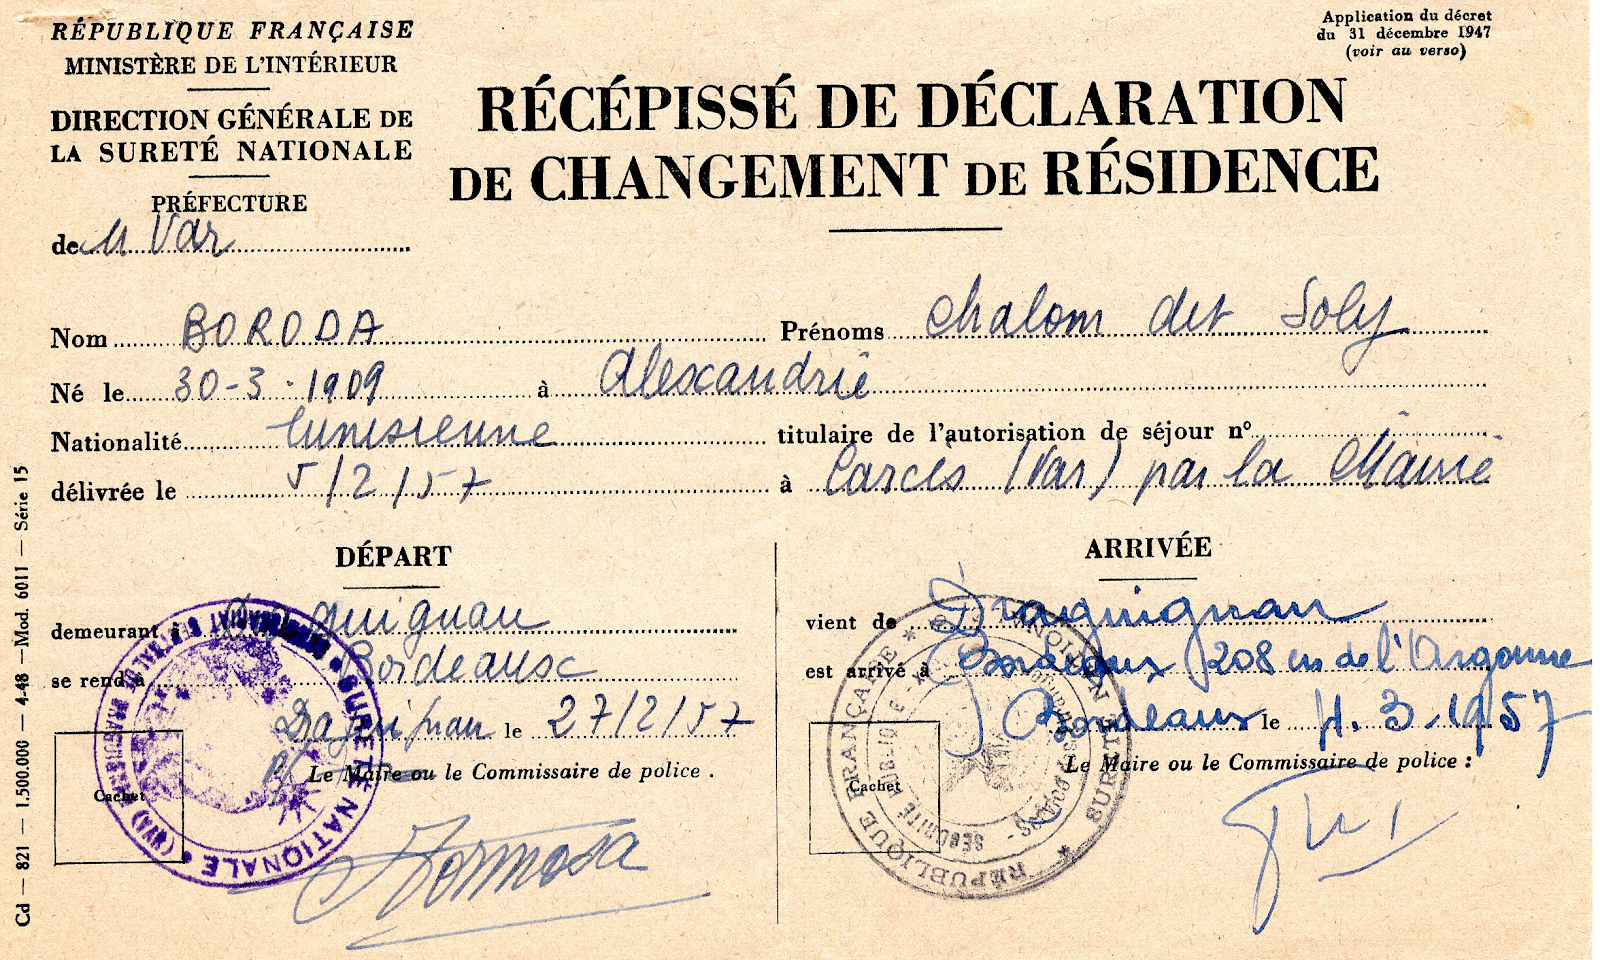 RÉPUBLIQUE FRANÇAISE
MINISTÈRE DE L'INTÉRIEUR
DIRECTION GÉNÉRALE DE
LA SURETÉ NATIONALE
PRÉFECTURE
de u Var
Application du décret
du 31 décembre 1947
(voir au verso)
RÉCÉPISSÉ DE DÉCLARATION
DE CHANGEMENT DE RÉSIDENCE
Nom BORODA Prénoms Chalom dit Soly
Né le 30-3-1909 à Alexandrie
Nationalité tunisienne titulaire de l'autorisation de séjour n°
délivrée le 5/2/57 à Carcès (Var) par la Mairie
DÉPART
demeurant à Draguignan
se rend à Bordeaux
Draguignan le 27/2/57
Le Maire ou le Commissaire de police.
Cachet
SURETÉ NATIONALE
Hormosa
ARRIVÉE
vient de Draguignan
est arrivé à Bordeaux 208 de l'Argonne
Bordeaux le 4.3.1957
Le Maire ou le Commissaire de police :
Cachet
RÉPUBLIQUE FRANÇAISE
Cd — 821 — 1.500.000 — 4-48 — Mod. 6011 — Série 15